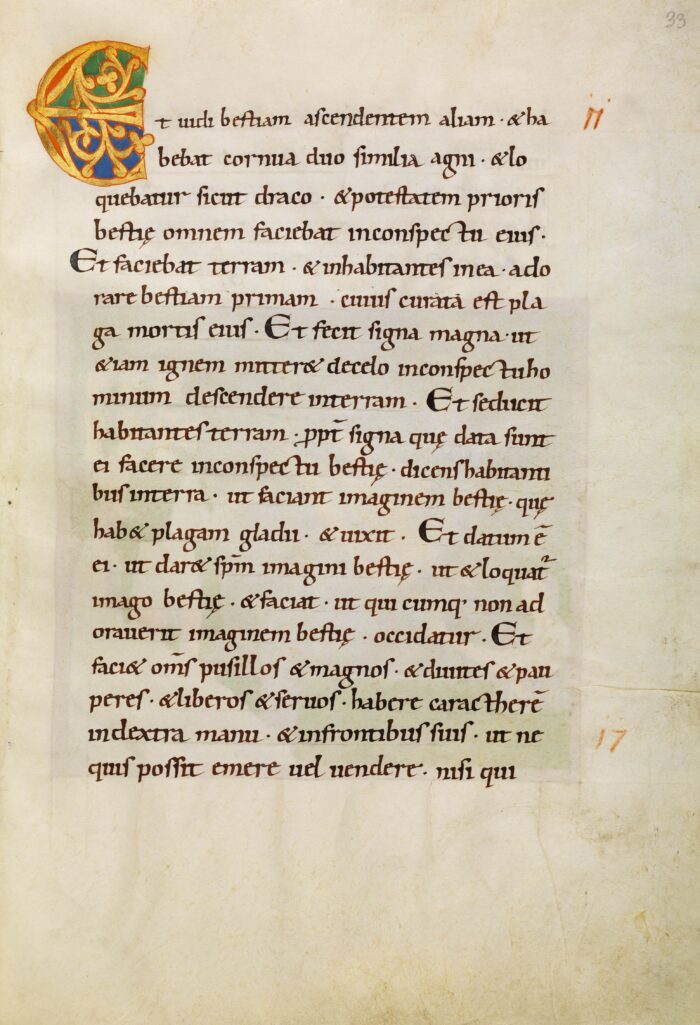 33
Et uidi bestiam ascendentem aliam · & ha 11
bebat cornua duo similia agni · & lo
quebatur sicut draco · & potestatem prioris
bestię omnem faciebat inconspectu eius ·
Et faciebat terram · & inhabitantes inea · ado
rare bestiam primam · cuius curata est pla
ga mortis eius · Et fecit signa magna · ut
&iam ignem mitter& decelo inconspectu ho
minum descendere interram · Et seducit
habitantes terram · ꝓpt̄ signa quę data sunt
ei facere inconspectu bestię · dicens habitanti
bus interra · ut faciant imaginem bestię · quę
hab& plagam gladii · & uixit · Et datum ē
ei · ut dar& sp̄m imagini bestię · ut & loquat᷑
imago bestię · & faciat · ut qui cumq· non ad
orauerit imaginem bestię · occidatur · Et
faci& om̄s pusillos & magnos · & diuites & pau
peres · & liberos & seruos · habere caractherē
indextra manu · & infrontibus suis · ut ne 17
quis possit emere uel uendere · nisi qui